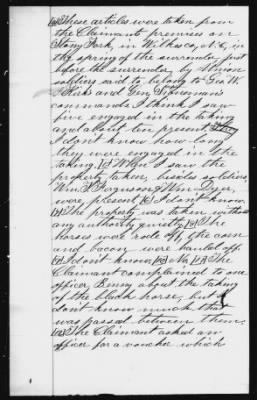 These articles were taken from
the Claimants premises on
Stony Fork, in Wilkes co, N. C, in
the spring of the surrender, just
before the surrender, by Union
soldiers said to belong to Geo. W.
Kirks and Gen. Stoneman's
commands I think I saw
five engaged in the taking
and about ten present.
I don't know how long
they were engaged in the
taking. When I saw the
property taken, besides soldiers,
Wm. F. Ferguson & Wm. Dyer,
were, present I don't know.
The property was taken without
any authority quietly The
horses were rode off, the corn
and bacon were hauled off.
I don't know No The
Claimant complained to one
officer, about the taking
of the black horse, but I
don't know much that
was passed between them.
The Claimant asked an
officer for a voucher which